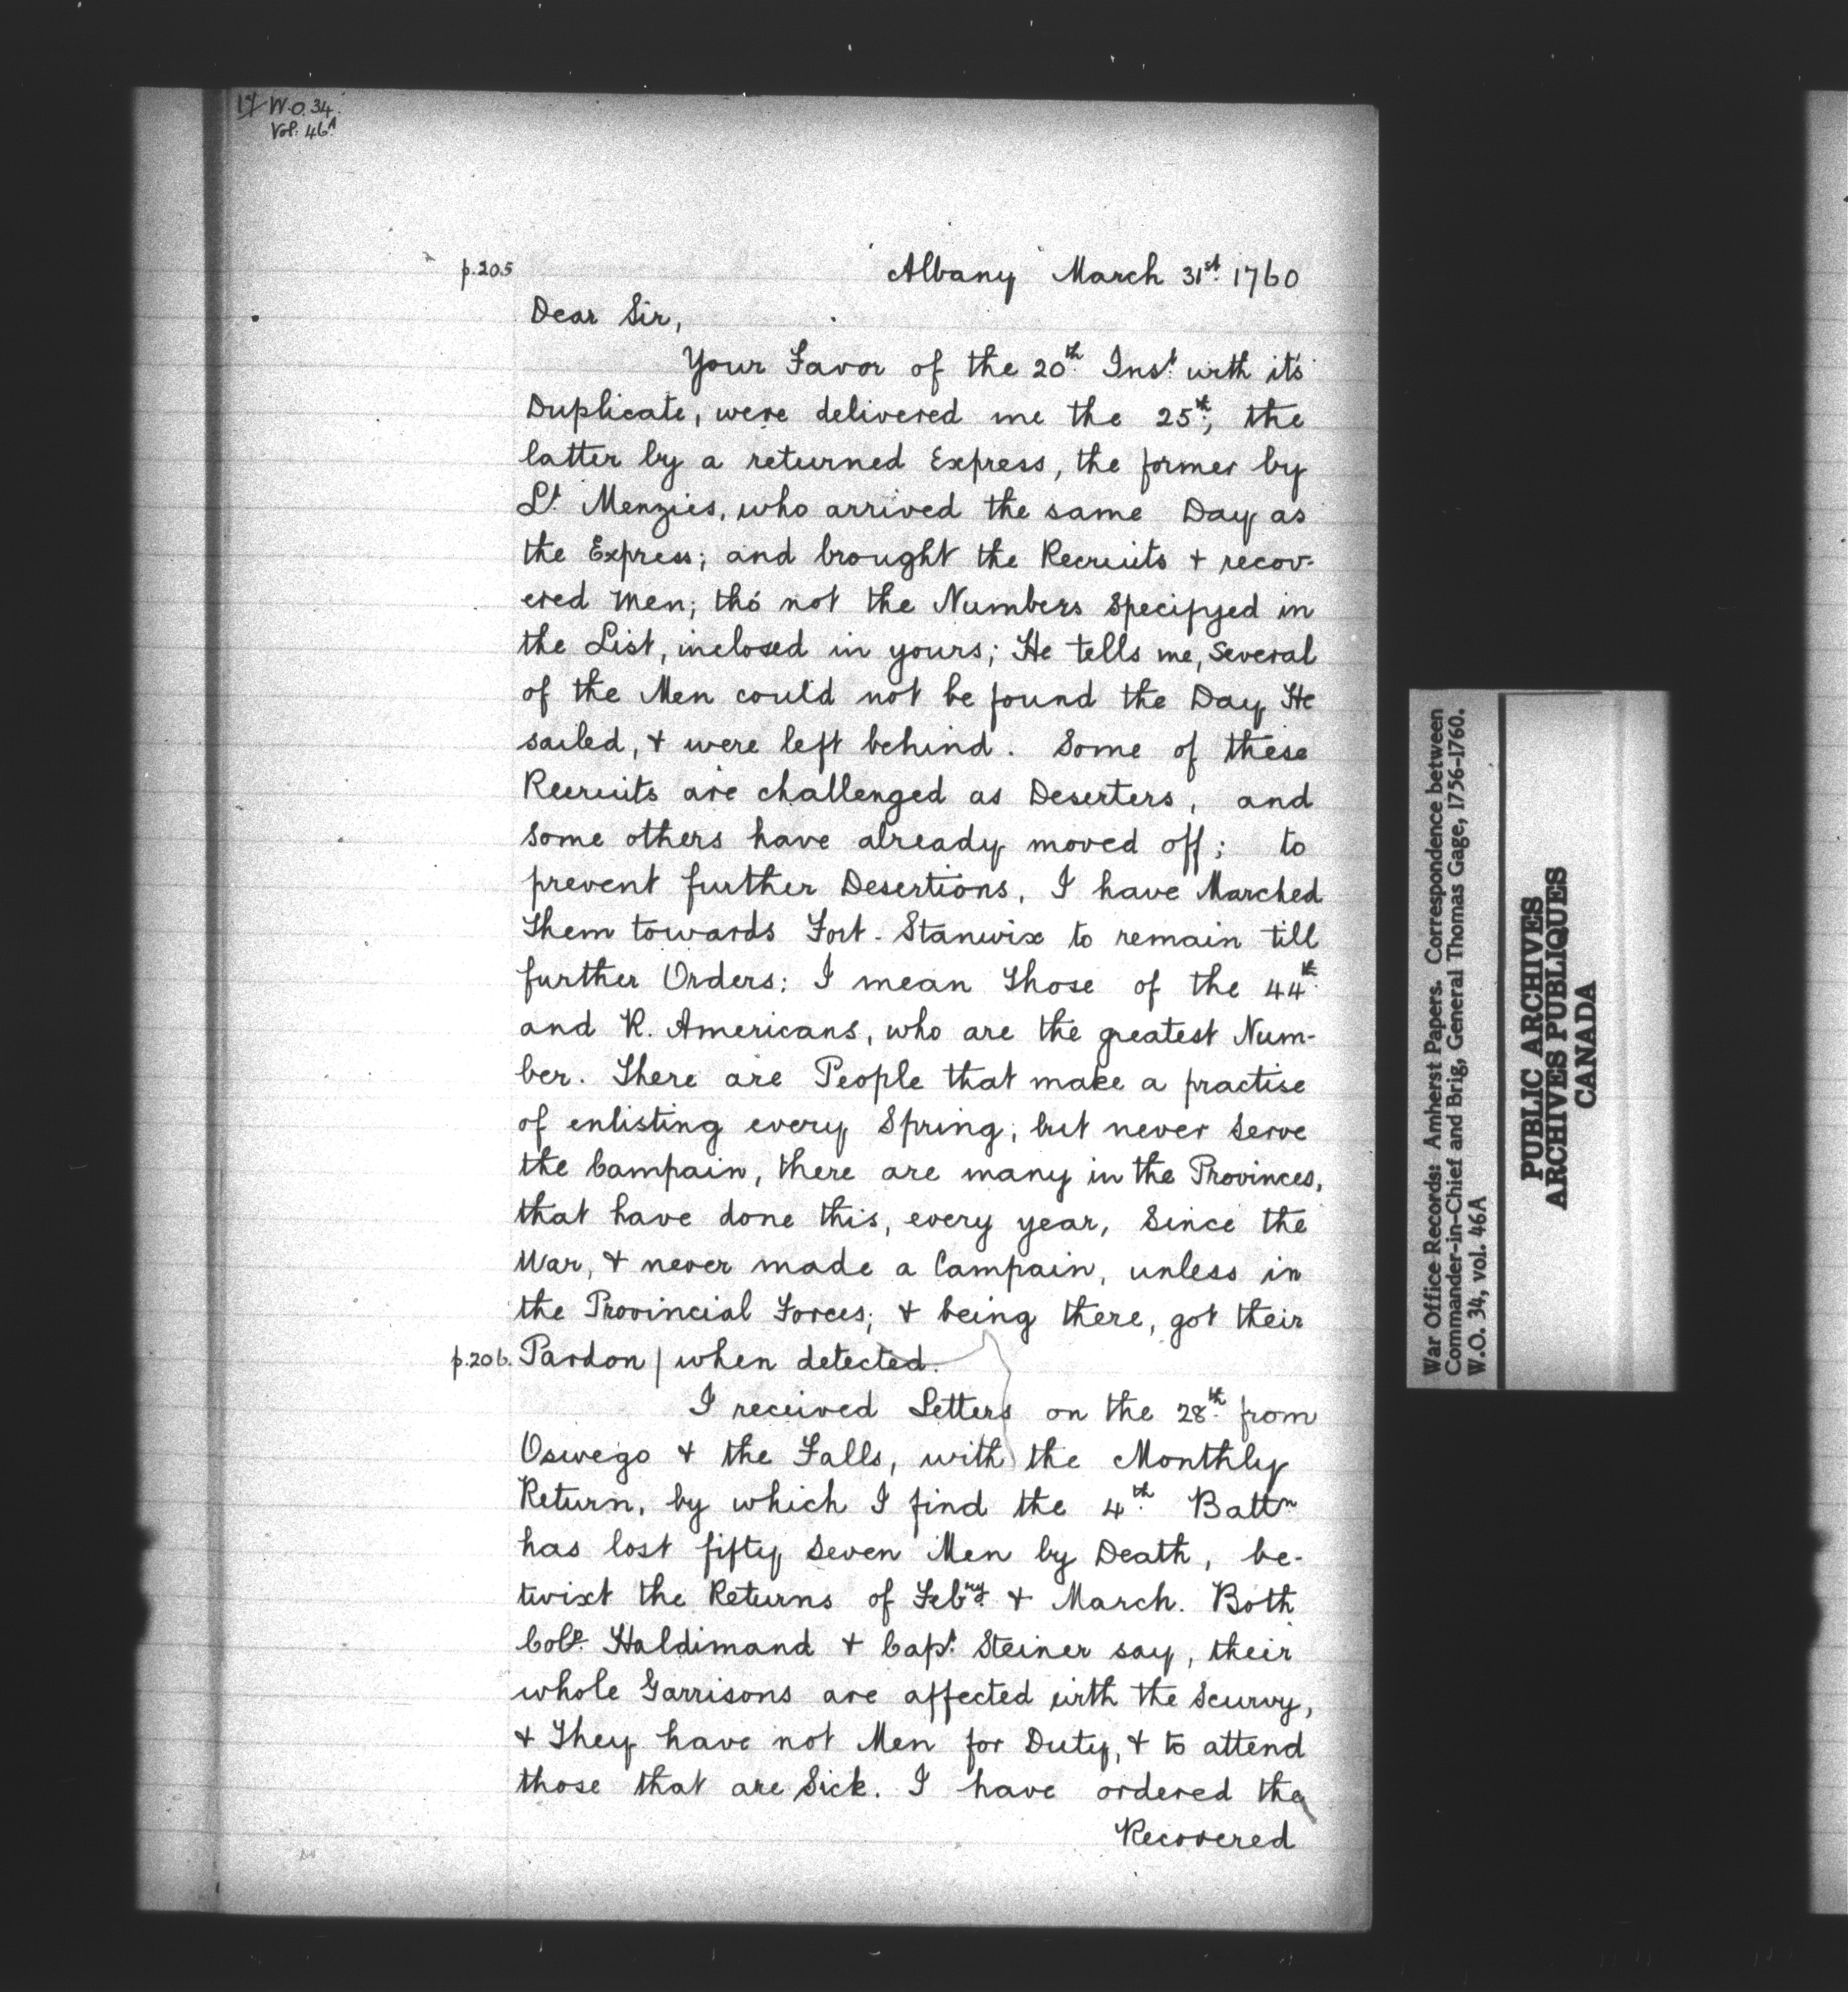 17/ W.O. 34.
Vol. 46A
p.205
Albany March 31st 1760
Dear Sir,
Your Favor of the 20th Inst. with it's
Duplicate, were delivered me the 25th; the
latter by a returned Express, the former by
Lt. Menzies, who arrived the same Day as
the Express; and brought the Recruits + recov-
ered Men; tho' not the Numbers Specifyed in
the List, inclosed in yours; He tells me, Several
of the Men could not be found the Day He
sailed, + were left behind. Some of these
Recruits are challenged as Deserters, and
some others have already moved off; to
prevent further Desertions, I have Marched
Them towards Fort-Stanwix to remain till
further Orders: I mean Those of the 44th
and R. Americans, who are the greatest Num-
ber. There are People that make a practise
of enlisting every Spring, but never Serve
the Campain, there are many in the Provinces,
that have done this, every year, Since the
War, + never made a Campain, unless in
the Provincial Forces; + being there, got their
p.206. Pardon | when detected.
I received Letters on the 28th from
Oswego + the Falls, with the Monthly
Return, by which I find the 4th Battn
has lost fifty Seven Men by Death, be-
twixt the Returns of Febry + March. Both
Colo. Haldimand + Capt. Steiner say, their
whole Garrisons are affected with the Scurvy,
+ They have not Men for Duty, + to attend
those that are Sick. I have ordered the
Recovered
War Office Records: Amherst Papers. Correspondence between
Commander-in-Chief and Brig. General Thomas Gage, 1756-1760.
W.O. 34, vol. 46A
PUBLIC ARCHIVES
ARCHIVES PUBLIQUES
CANADA